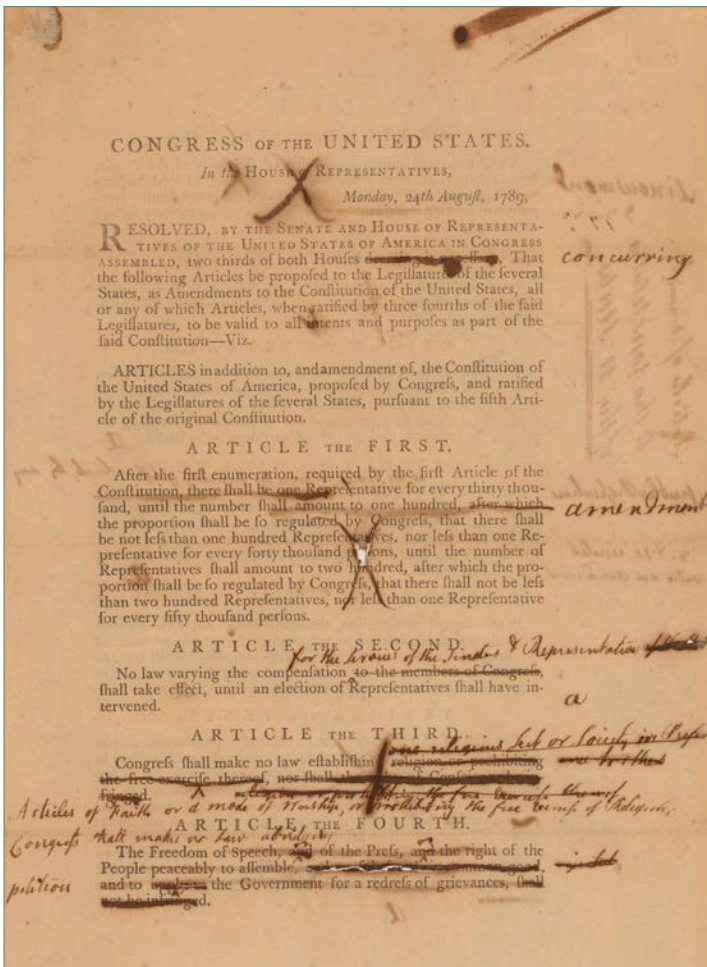 CONGRESS OF THE UNITED STATES.
In the HOUSE of REPRESENTATIVES,
Monday, 24th Auguſt, 1789,
RESOLVED, BY THE SENATE AND HOUSE OF REPRESENTA-
TIVES OF THE UNITED STATES OF AMERICA IN CONGRESS
ASSEMBLED, two thirds of both Houſes That
concurring
the following Articles be propoſed to the Legiſlatures of the ſeveral
States, as Amendments to the Conſtitution of the United States, all
or any of which Articles, when ratified by three fourths of the ſaid
Legiſlatures, to be valid to all intents and purpoſes as part of the
ſaid Conſtitution—Viz.
ARTICLES in addition to, and amendment of, the Conſtitution of
the United States of America, propoſed by Congreſs, and ratified
by the Legiſlatures of the ſeveral States, purſuant to the fifth Arti-
cle of the original Conſtitution.
ARTICLE THE FIRST.
After the firſt enumeration, required by the firſt Article of the
Conſtitution, there ſhall be one Repreſentative for every thirty thou-
ſand, until the number ſhall amount to one hundred, after which
amendment
the proportion ſhall be ſo regulated by Congreſs, that there ſhall
be not leſs than one hundred Repreſentatives, nor leſs than one Re-
preſentative for every forty thouſand perſons, until the number of
Repreſentatives ſhall amount to two hundred, after which the pro-
portion ſhall be ſo regulated by Congreſs, that there ſhall not be leſs
than two hundred Repreſentatives, nor leſs than one Repreſentative
for every fifty thouſand perſons.
ARTICLE THE SECOND.
for the ſervices of the Senators & Repreſentatives
No law varying the compenſation to the members of Congreſs,
ſhall take effect, until an election of Repreſentatives ſhall have in-
tervened.
a
ARTICLE THE THIRD.
one religious Sect or Society in
Congreſs ſhall make no law eſtabliſhing religion or prohibiting
the free exerciſe thereof, nor ſhall the of
fringed. religion or prohibiting the free exercise thereof
Articles of Faith or a mode of Worship, or prohibiting the free exercise of Religion,
ARTICLE THE FOURTH.
Congreſs shall make no law abridging
The Freedom of Speech, and of the Preſs, and the right of the
People peaceably to aſſemble, good,
petition
and to the Government for a redreſs of grievances, ſhall
not be infringed.